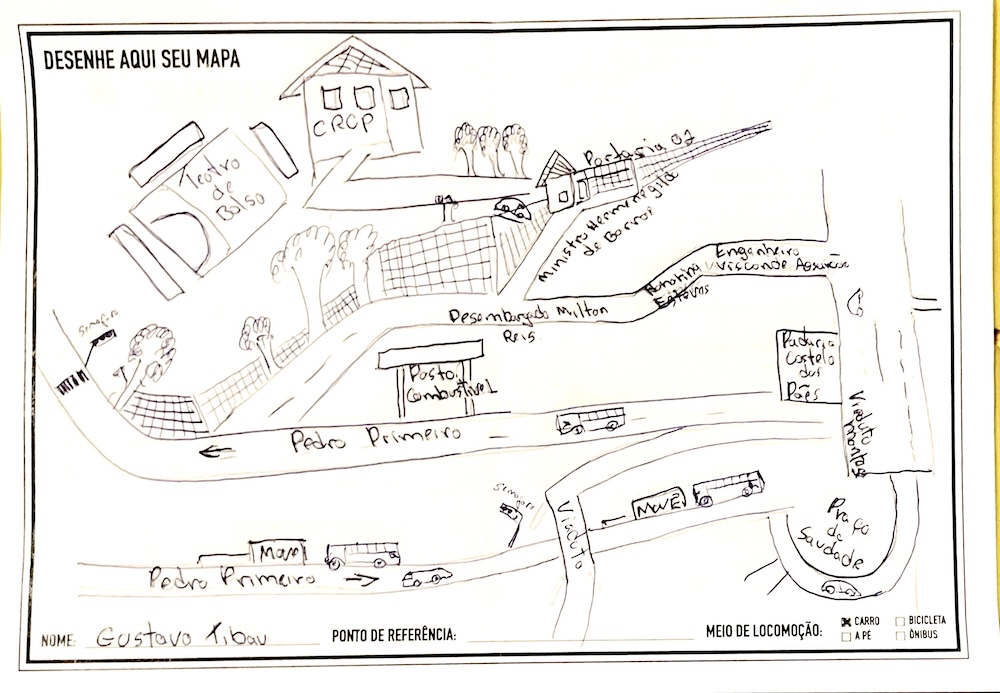 DESENHE AQUI SEU MAPA
CRCP
Teatro
de
Bolso
Portaria 02
Ministro Hermenegildo
de Barros
Engenheiro
Visconde
Estevms
Desembargado Milton
Reis
Semaforo
Posto
Combustivel
Padaria
Castelo
dos
Pães
Viaduto
Pedro Primeiro
Semaforo
Viaduto
MOVE
Praça
da
Saudade
Move
Pedro Primeiro
NOME: Gustavo Tibau
PONTO DE REFERÊNCIA:
MEIO DE LOCOMOÇÃO:
CARRO
BICICLETA
A PÉ
ÔNIBUS